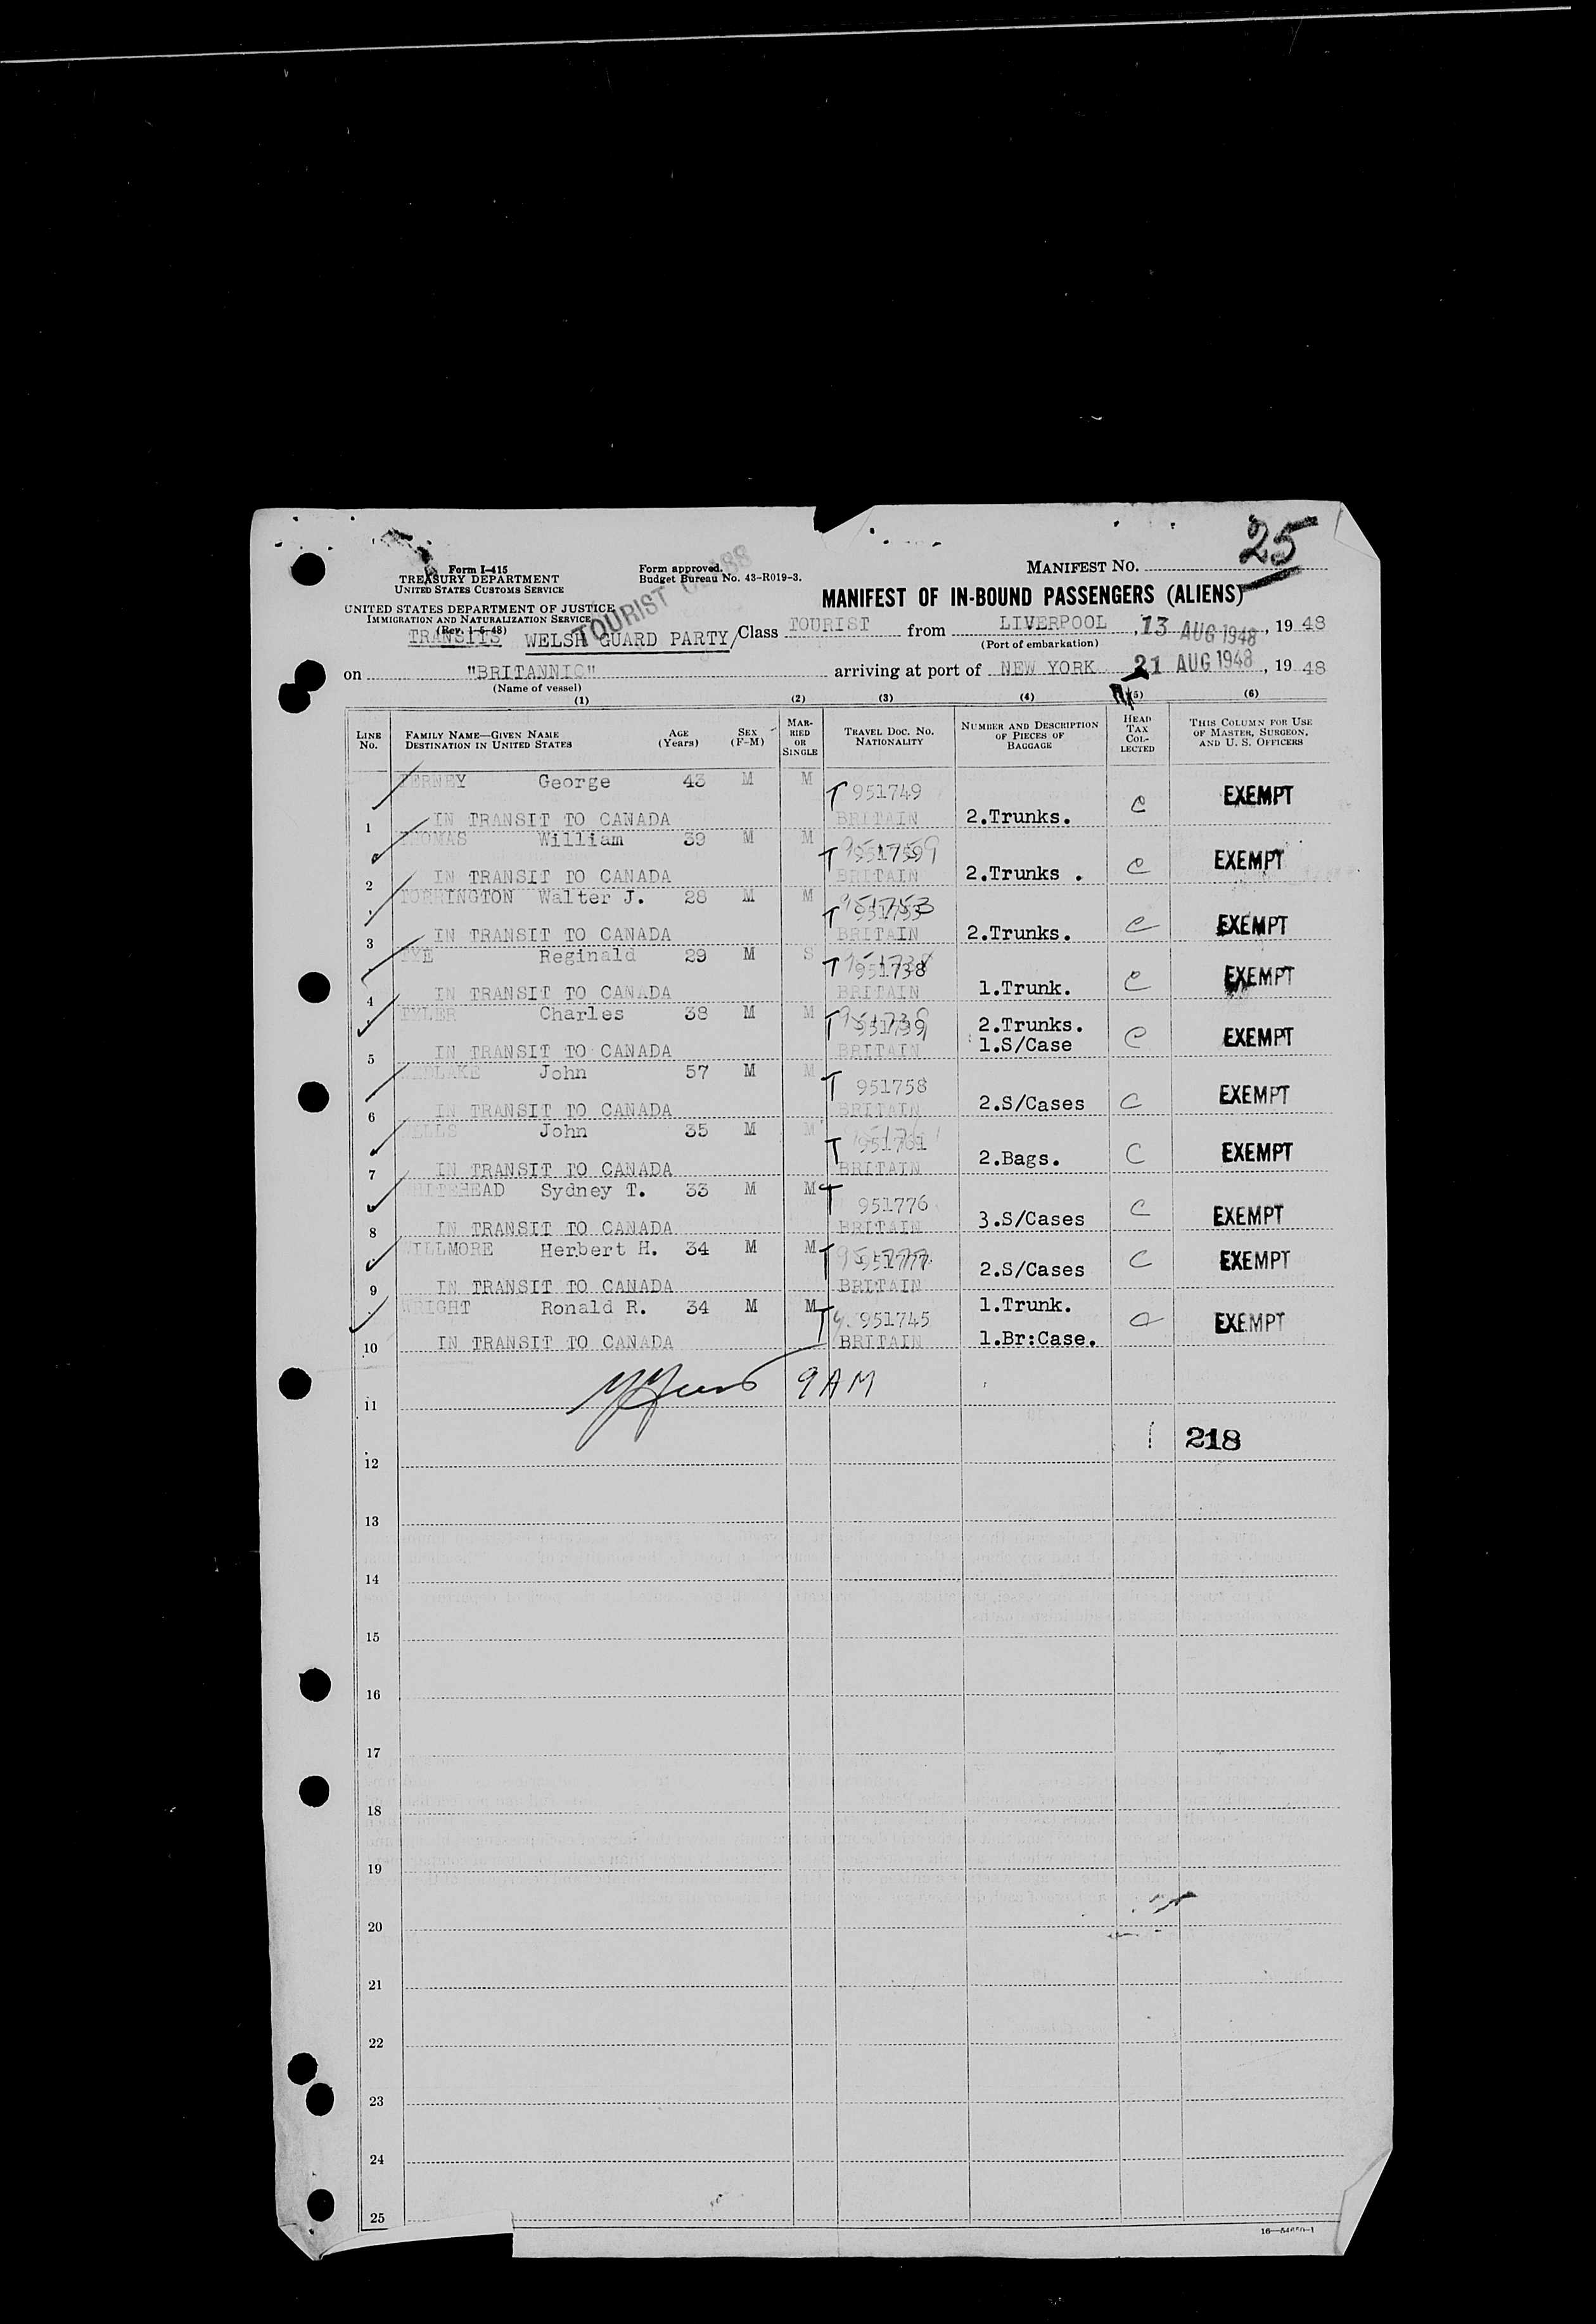 25
Form I-415
TREASURY DEPARTMENT
UNITED STATES CUSTOMS SERVICE
Form approved.
Budget Bureau No. 43-R019-3.
MANIFEST NO.
UNITED STATES DEPARTMENT OF JUSTICE
IMMIGRATION AND NATURALIZATION SERVICE
(Rev. 1-5-48)
TOURIST
MANIFEST OF IN-BOUND PASSENGERS (ALIENS)
TRANSITS WELSH GUARD PARTY/Class TOURIST from LIVERPOOL, 13 AUG 1948, 19 48
(Port of embarkation)
on "BRITANNIC" arriving at port of NEW YORK 21 AUG 1948, 19 48
(Name of vessel)
(1) (2) (3) (4) (5) (6)
LINE No. FAMILY NAME—GIVEN NAME DESTINATION IN UNITED STATES AGE (Years) SEX (F-M) MARRIED OR SINGLE TRAVEL DOC. NO. NATIONALITY NUMBER AND DESCRIPTION OF PIECES OF BAGGAGE HEAD TAX COLLECTED THIS COLUMN FOR USE OF MASTER, SURGEON, AND U. S. OFFICERS
George 43 M M T 951749 EXEMPT
1 IN TRANSIT TO CANADA BRITAIN 2.Trunks. C
THOMAS William 39 M M T 951759 EXEMPT
2 IN TRANSIT TO CANADA BRITAIN 2.Trunks . C
TORRINGTON Walter J. 28 M M T 951753 EXEMPT
3 IN TRANSIT TO CANADA BRITAIN 2.Trunks. C
TYE Reginald 29 M S T 951738 EXEMPT
4 IN TRANSIT TO CANADA BRITAIN 1.Trunk. C
TYLER Charles 38 M M T 951739 2.Trunks. EXEMPT
5 IN TRANSIT TO CANADA BRITAIN 1.S/Case C
WEDLAKE John 57 M M T 951758 EXEMPT
6 IN TRANSIT TO CANADA BRITAIN 2.S/Cases C
WELLS John 35 M M T 951761 EXEMPT
7 IN TRANSIT TO CANADA BRITAIN 2.Bags. C
WHITEHEAD Sydney T. 33 M M T 951776 C EXEMPT
8 IN TRANSIT TO CANADA BRITAIN 3.S/Cases
WILLMORE Herbert H. 34 M M T 951777 C EXEMPT
9 IN TRANSIT TO CANADA BRITAIN 2.S/Cases
WRIGHT Ronald R. 34 M M T 951745 1.Trunk. C EXEMPT
10 IN TRANSIT TO CANADA BRITAIN 1.Br:Case.
9 AM
11
218
12
13
14
15
16
17
18
19
20
21
22
23
24
25